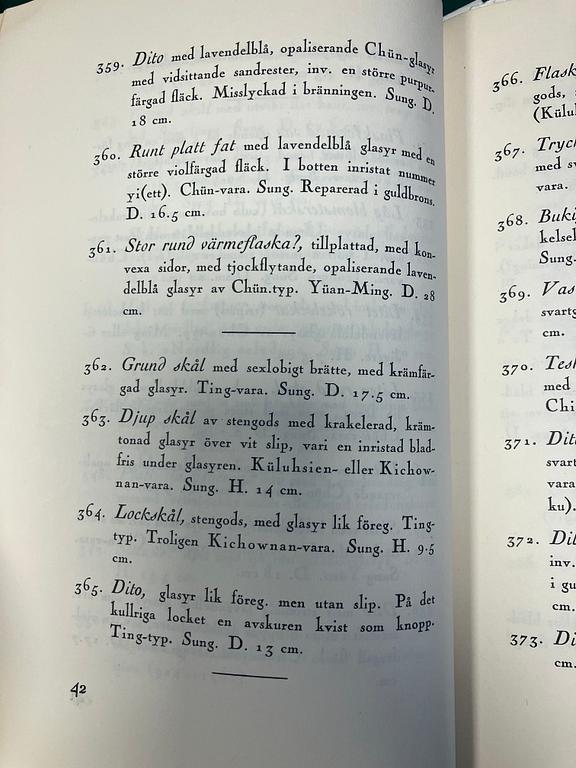 359. Dito med lavendelblå, opaliserande Chün-glasyr
med vidsittande sandrester, inv. en större purpur-
färgad fläck. Misslyckad i bränningen. Sung. D.
18 cm.
360. Runt platt fat med lavendelblå glasyr med en
större violfärgad fläck. I botten inristat nummer
yi(ett). Chün-vara. Sung. Reparerad i guldbrons.
D. 16.5 cm.
361. Stor rund värmeflaska?, tillplattad, med kon-
vexa sidor, med tjockflytande, opaliserande laven-
delblå glasyr av Chün.typ. Yüan-Ming. D. 28
cm.
362. Grund skål med sexlobigt brätte, med krämfär-
gad glasyr. Ting-vara. Sung. D. 17.5 cm.
363. Djup skål av stengods med krakelerad, kräm-
tonad glasyr över vit slip, vari en inristad blad-
fris under glasyren. Küluhsien- eller Kichow-
nan-vara. Sung. H. 14 cm.
364. Lockskål, stengods, med glasyr lik föreg. Ting-
typ. Troligen Kichownan-vara. Sung. H. 9.5
cm.
365. Dito, glasyr lik föreg. men utan slip. På det
kullriga locket en avskuren kvist som knopp.
Ting-typ. Sung. D. 13 cm.
42
366. Flask
gods,
(Külu
367. Tryc
med s
vara.
368. Buki
kelsel
Sung-
369. Vas
svartg
cm.
370. Tesk
med
Chi
371. Dit
svart
vara
ku).
372. Dit
inv.
i gu
cm.
373. Di
cm.